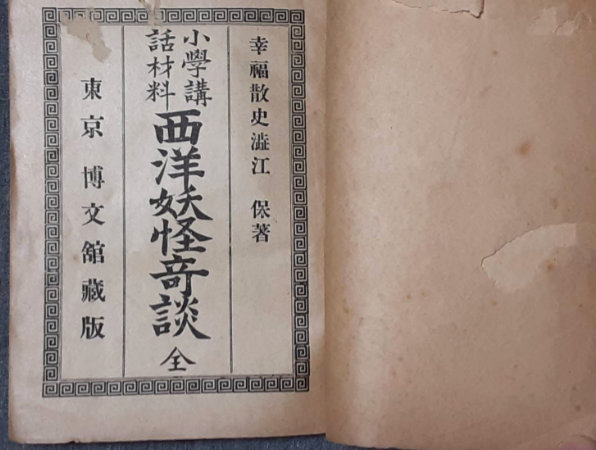 幸福散史澁江 保著
小學講
話材料
西洋妖怪奇談 全
東京 博文舘藏版